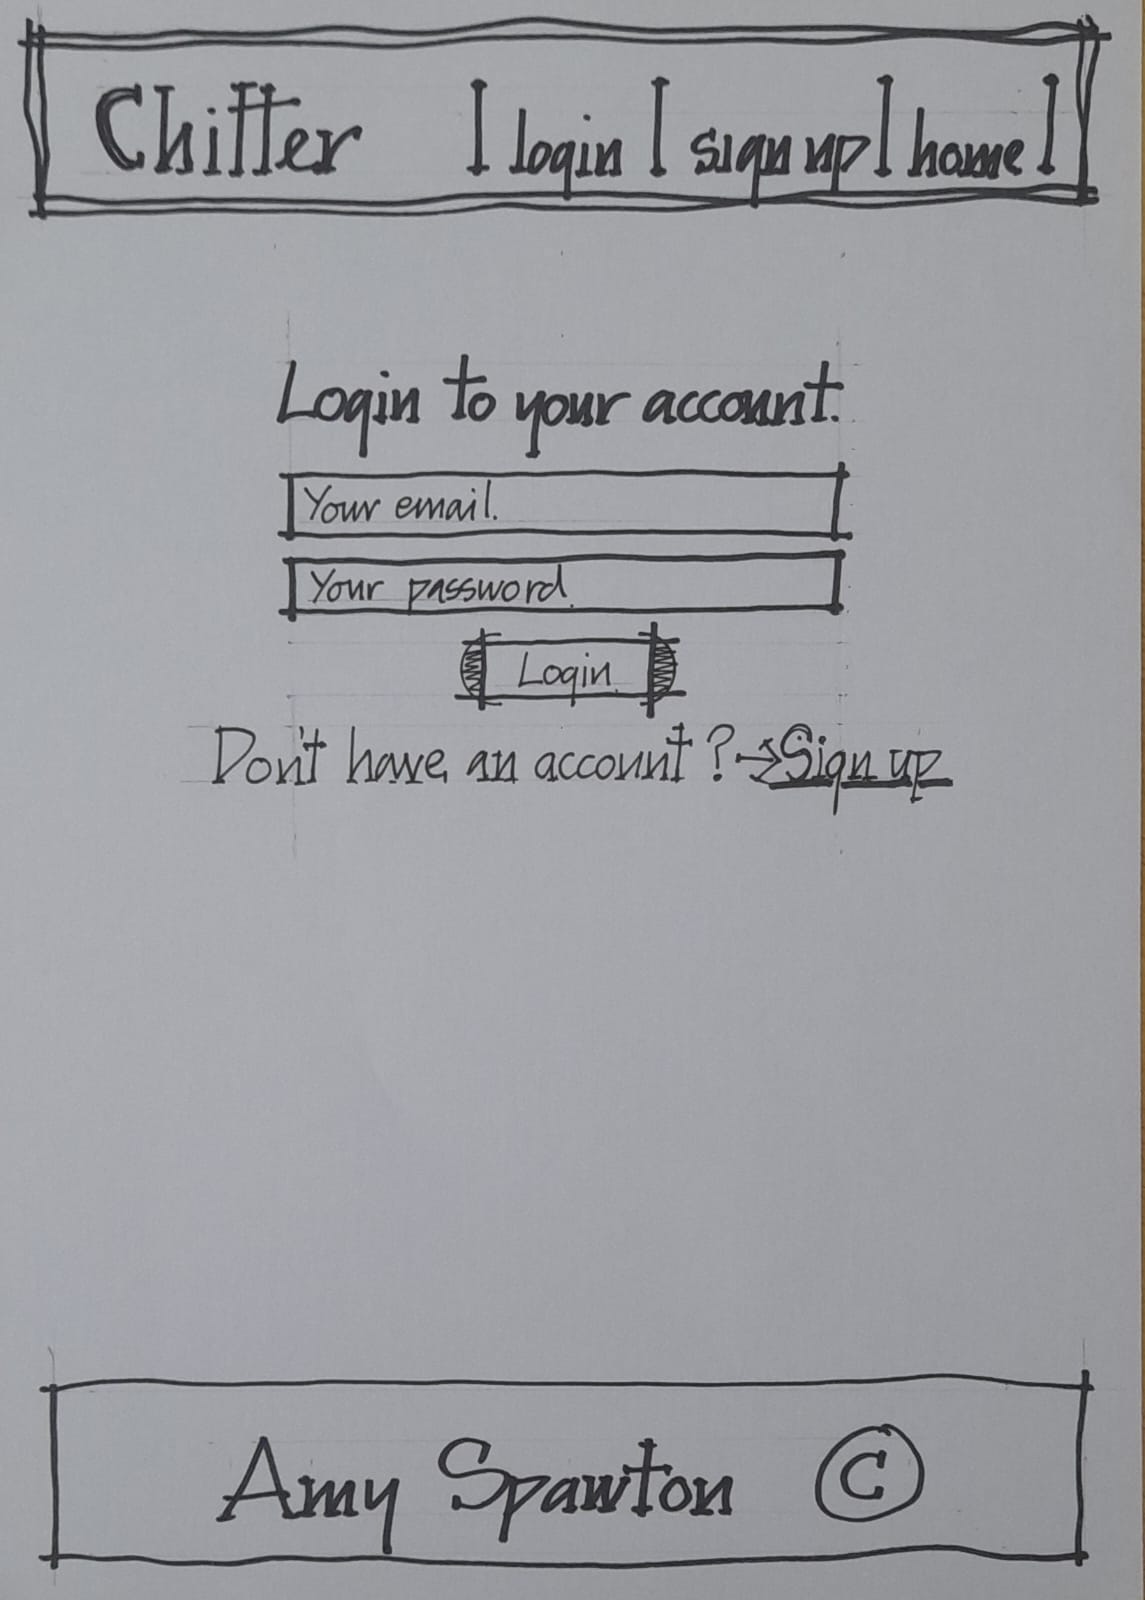 Chitter | login | sign up | home |
Login to your account.
Your email.
Your password.
Login.
Don't have an account? → Sign up
Amy Spawton ©